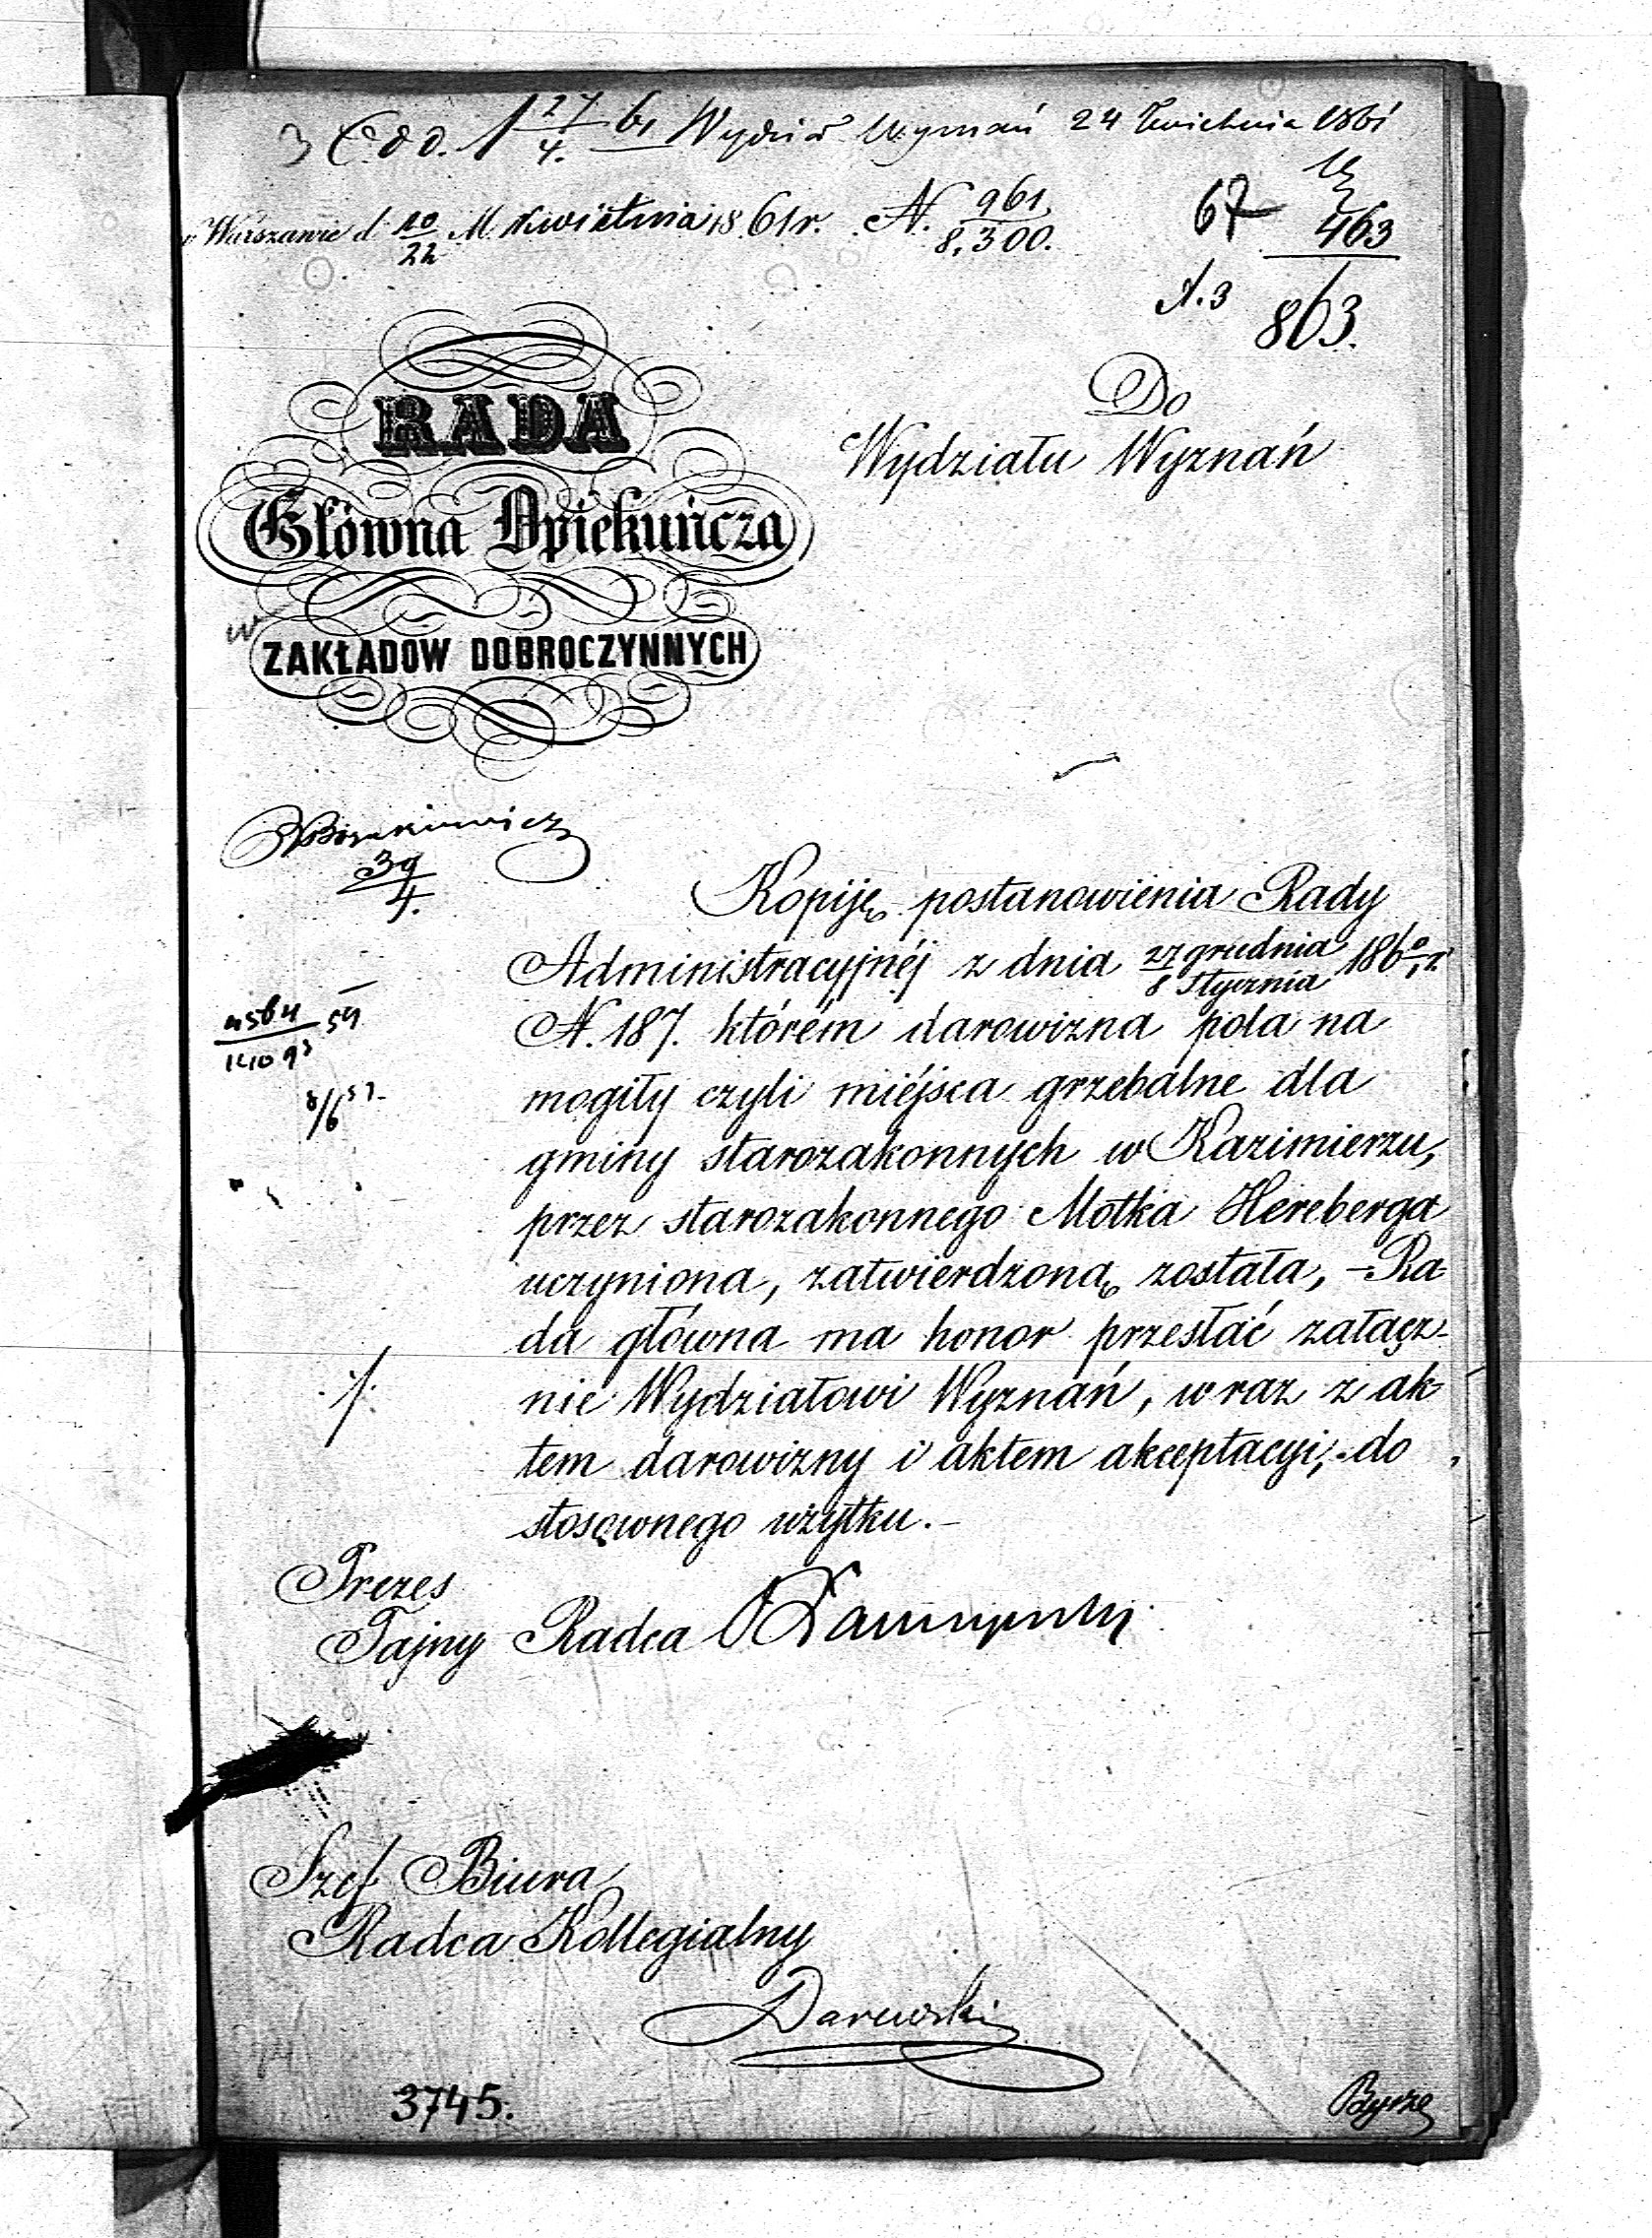 27/4 61 Wydział Wyznań 24 Kwietnia 1861
w Warszawie d. 10/22 M. Kwietnia 1861 r. N. 961/8,300.
67
463
863.
RADA
Główna Opiekuńcza
ZAKŁADOW DOBROCZYNNYCH
Do
Wydziału Wyznań
39/4.
Kopiję postanowienia Rady
Administracyjnéj z dnia 27 grudnia/8 Stycznia 1860/1 r.
N. 187. którém darowizna pola na
mogiły czyli miéjsca grzebalne dla
gminy starozakonnych w Kazimierzu,
przez starozakonnego Motka Hereberga
uczyniona, zatwierdzoną została, – Ra-
da główna ma honor przesłać załącz-
nie Wydziałowi Wyznań, w raz z ak
tem darowizny i aktem akceptacyi, do
stosownego użytku. –
Prezes
Tajny Radca
Szef Biura
Radca Kollegialny
Darewski
3745.